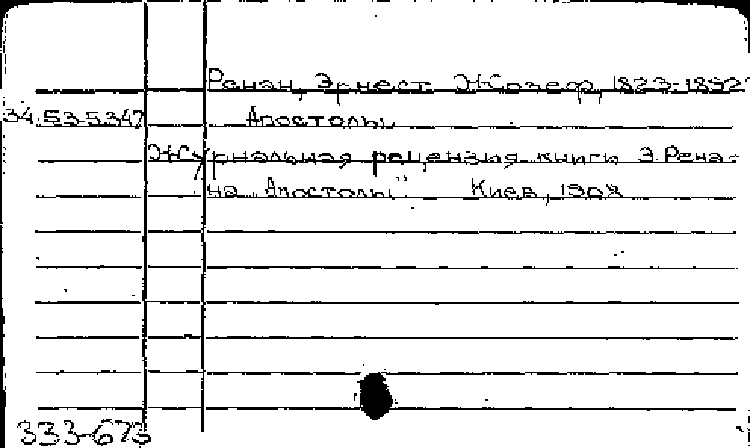 Ренан, Эрнест Жозеф, 1823-1892
34.53-5347 Апостолы
Журнальная рецензия книги Э. Рена-
на „Апостолы". Киев, 1908
333-673